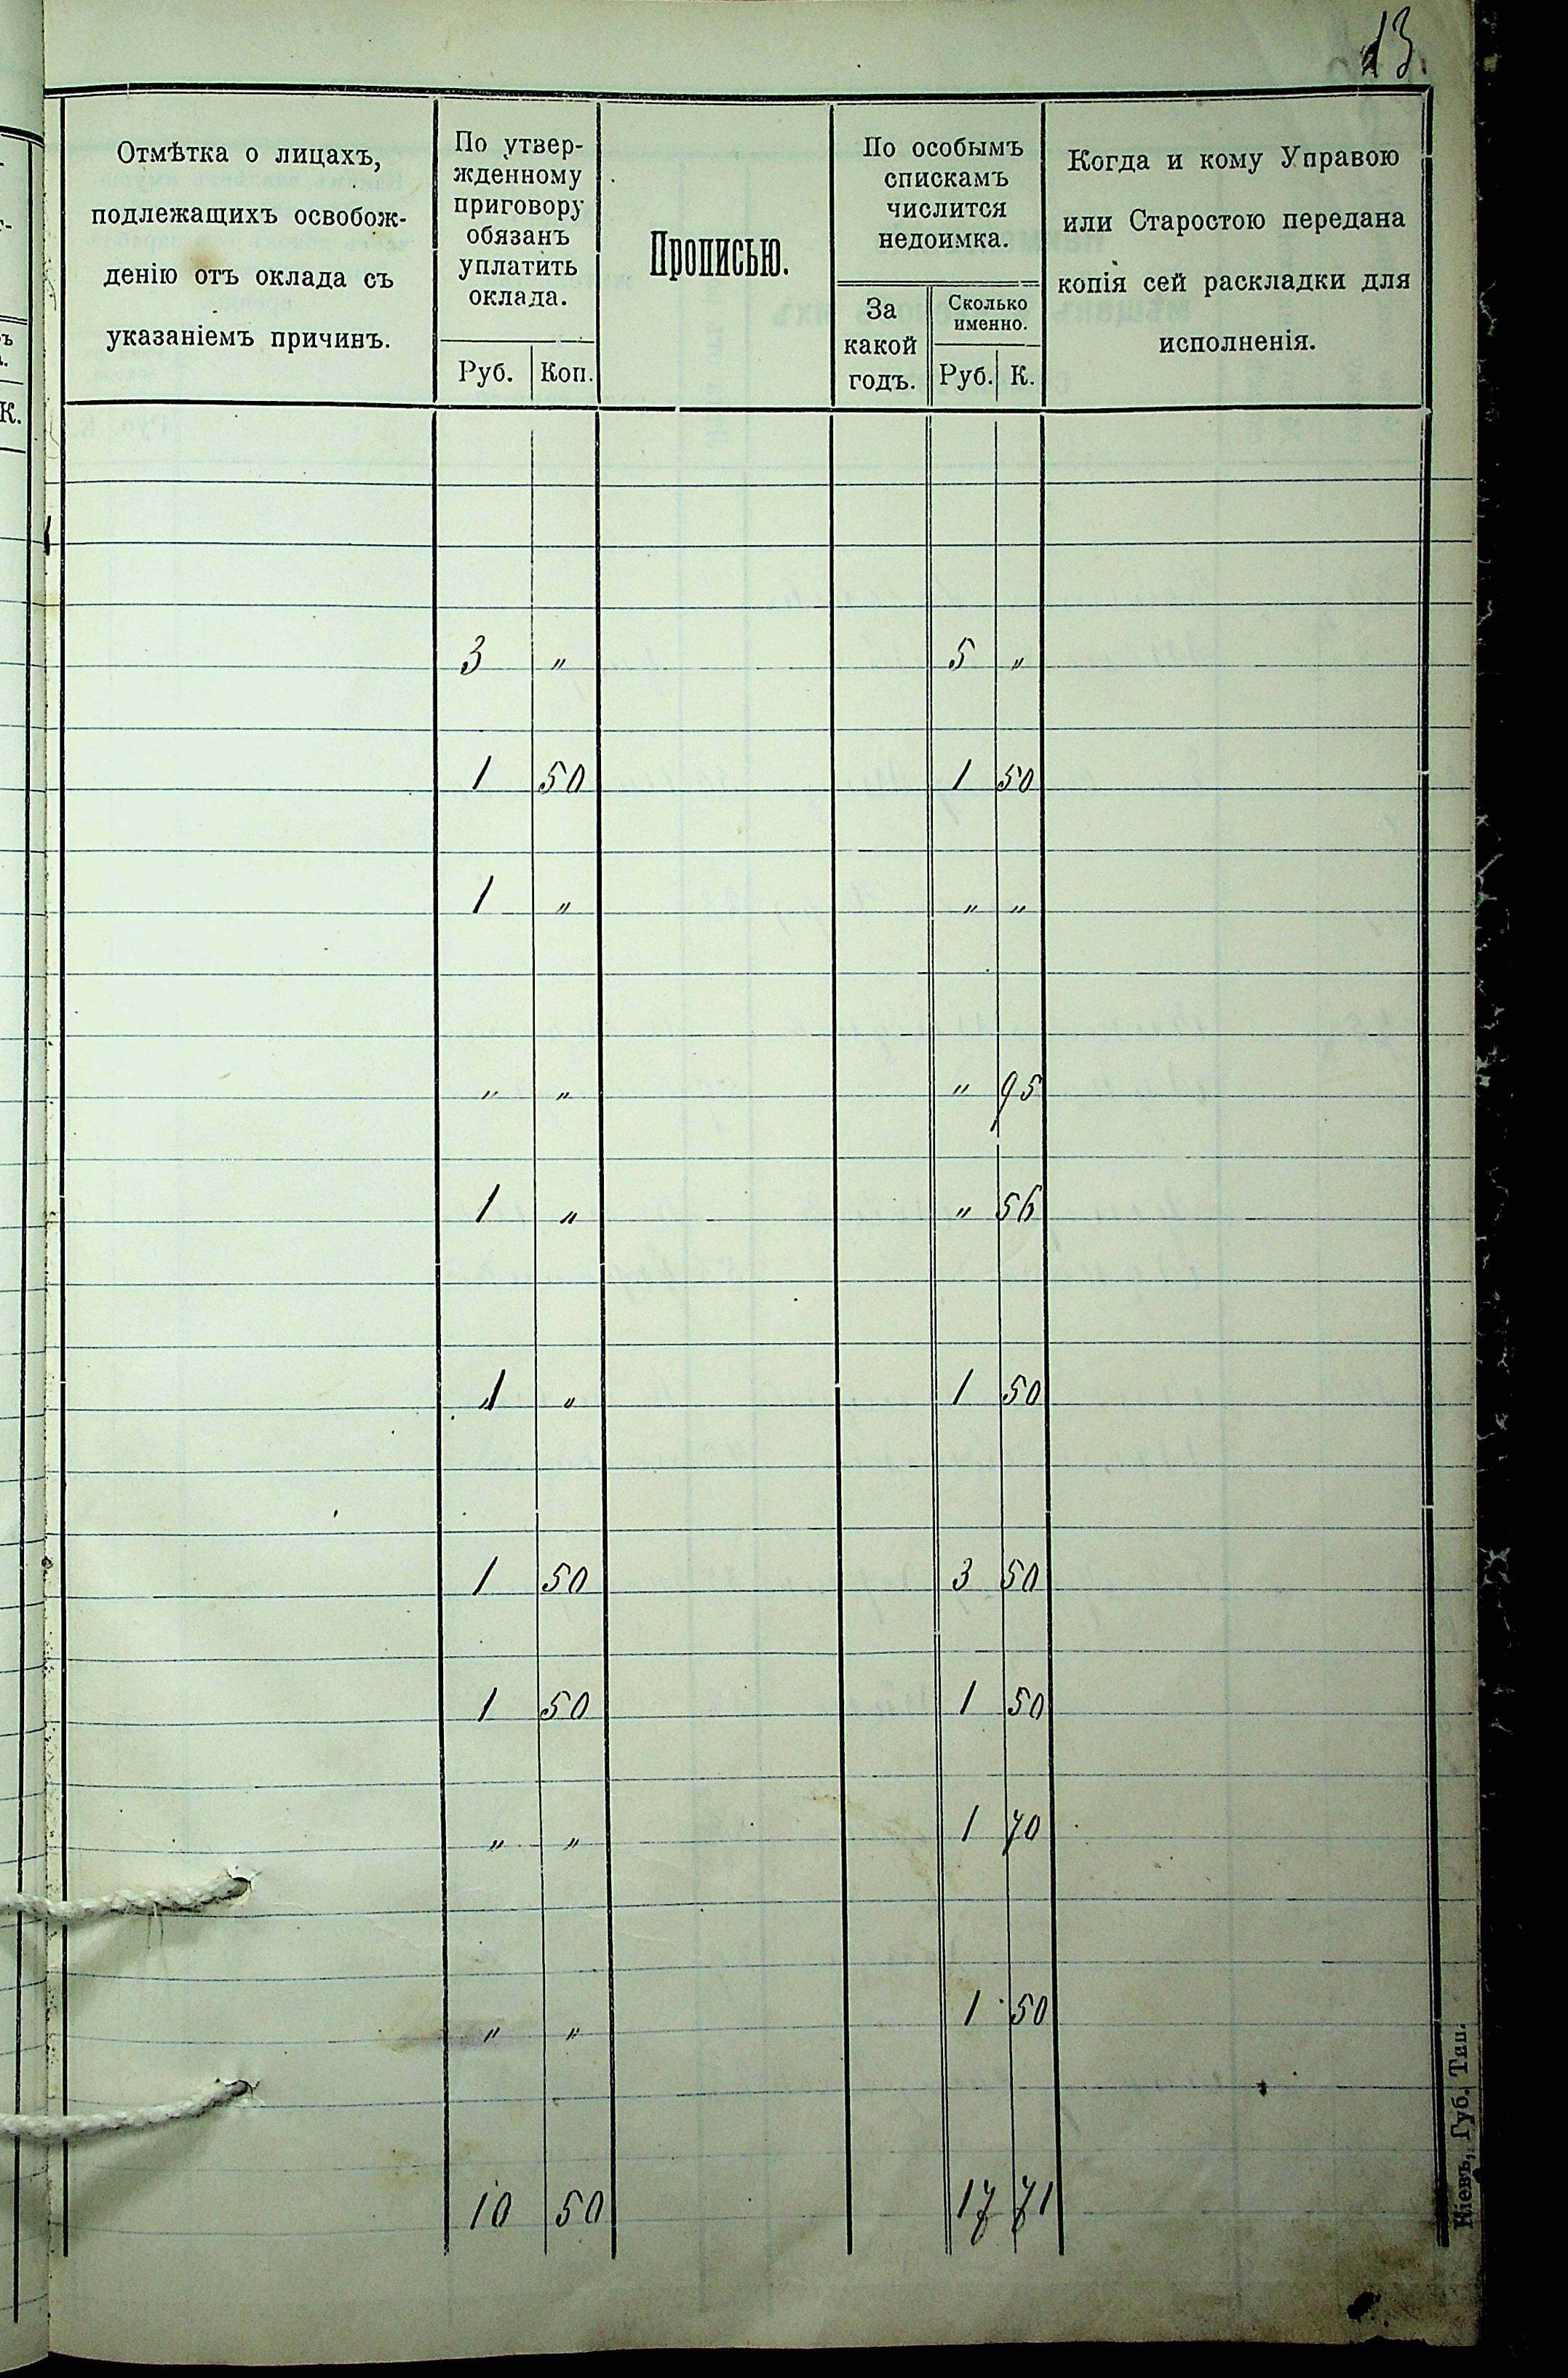 13
Отмѣтка о лицахъ,
подлежащихъ освобож-
денію отъ оклада съ
указаніемъ причинъ.
По утвер-
жденному
приговору
обязанъ
уплатить
оклада.
Руб. Коп.
Прописью.
По особымъ
спискамъ
числится
недоимка.
За
какой
годъ.
Сколько
именно.
Руб. К.
Когда и кому Управою
или Старостою передана
копія сей раскладки для
исполненія.
К.
3 " 5 "
1 50 1 50
1 " " "
" " " 95
1 " " 56
1 " 1 50
1 50 3 50
1 50 1 50
" " 1 70
" " 1 50
10 50 17 71
Кіевъ, Губ. Тип.